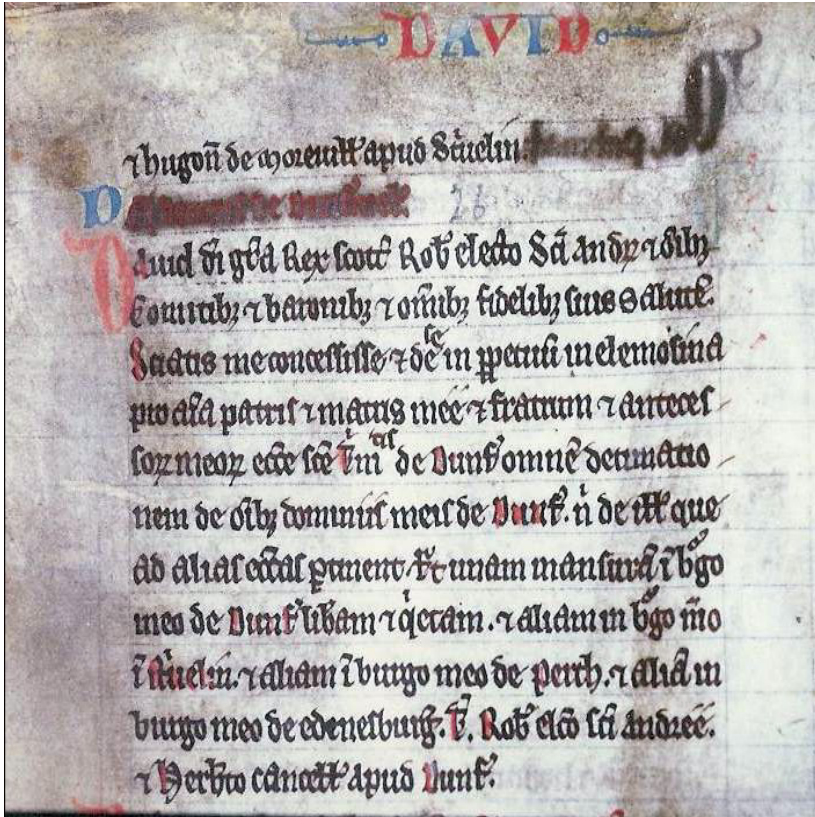 DAVID
⁊ hugoñ de moreuiłł apud St'uelin.
26
Dauid di gr̃a Rex scott' Rob' electo Sc̃i Andr' ⁊ õib;
Comitib; ⁊ baronib; ⁊ om̃ib; fidelib; suis Salut̃e.
Sciatis me concessisse ⁊ dedisse in ꝑpetuũ in elemosina
pro aĩa patris ⁊ matris mee ⁊ fratrum ⁊ anteces-
soꝝ meoꝝ ecc̃e sc̃e T'nitatis de Dunf' omnẽ decimatio-
nem de õib; dominiis meis de Dunf'. ñ de iłł que
ad alias ecc̃as ꝑtinent. Et unam mansurã ĩ b'go
meo de Dunf' lib'am ⁊ q'etam. ⁊ aliam in b'go mõ
ĩ St'uelin. ⁊ aliam ĩ burgo meo de perth. ⁊ aliã in
burgo meo de edenesburg̃. T'. Rob' elc̃o sc̃i andree.
⁊ Herb'to cancełł apud Dunf'.